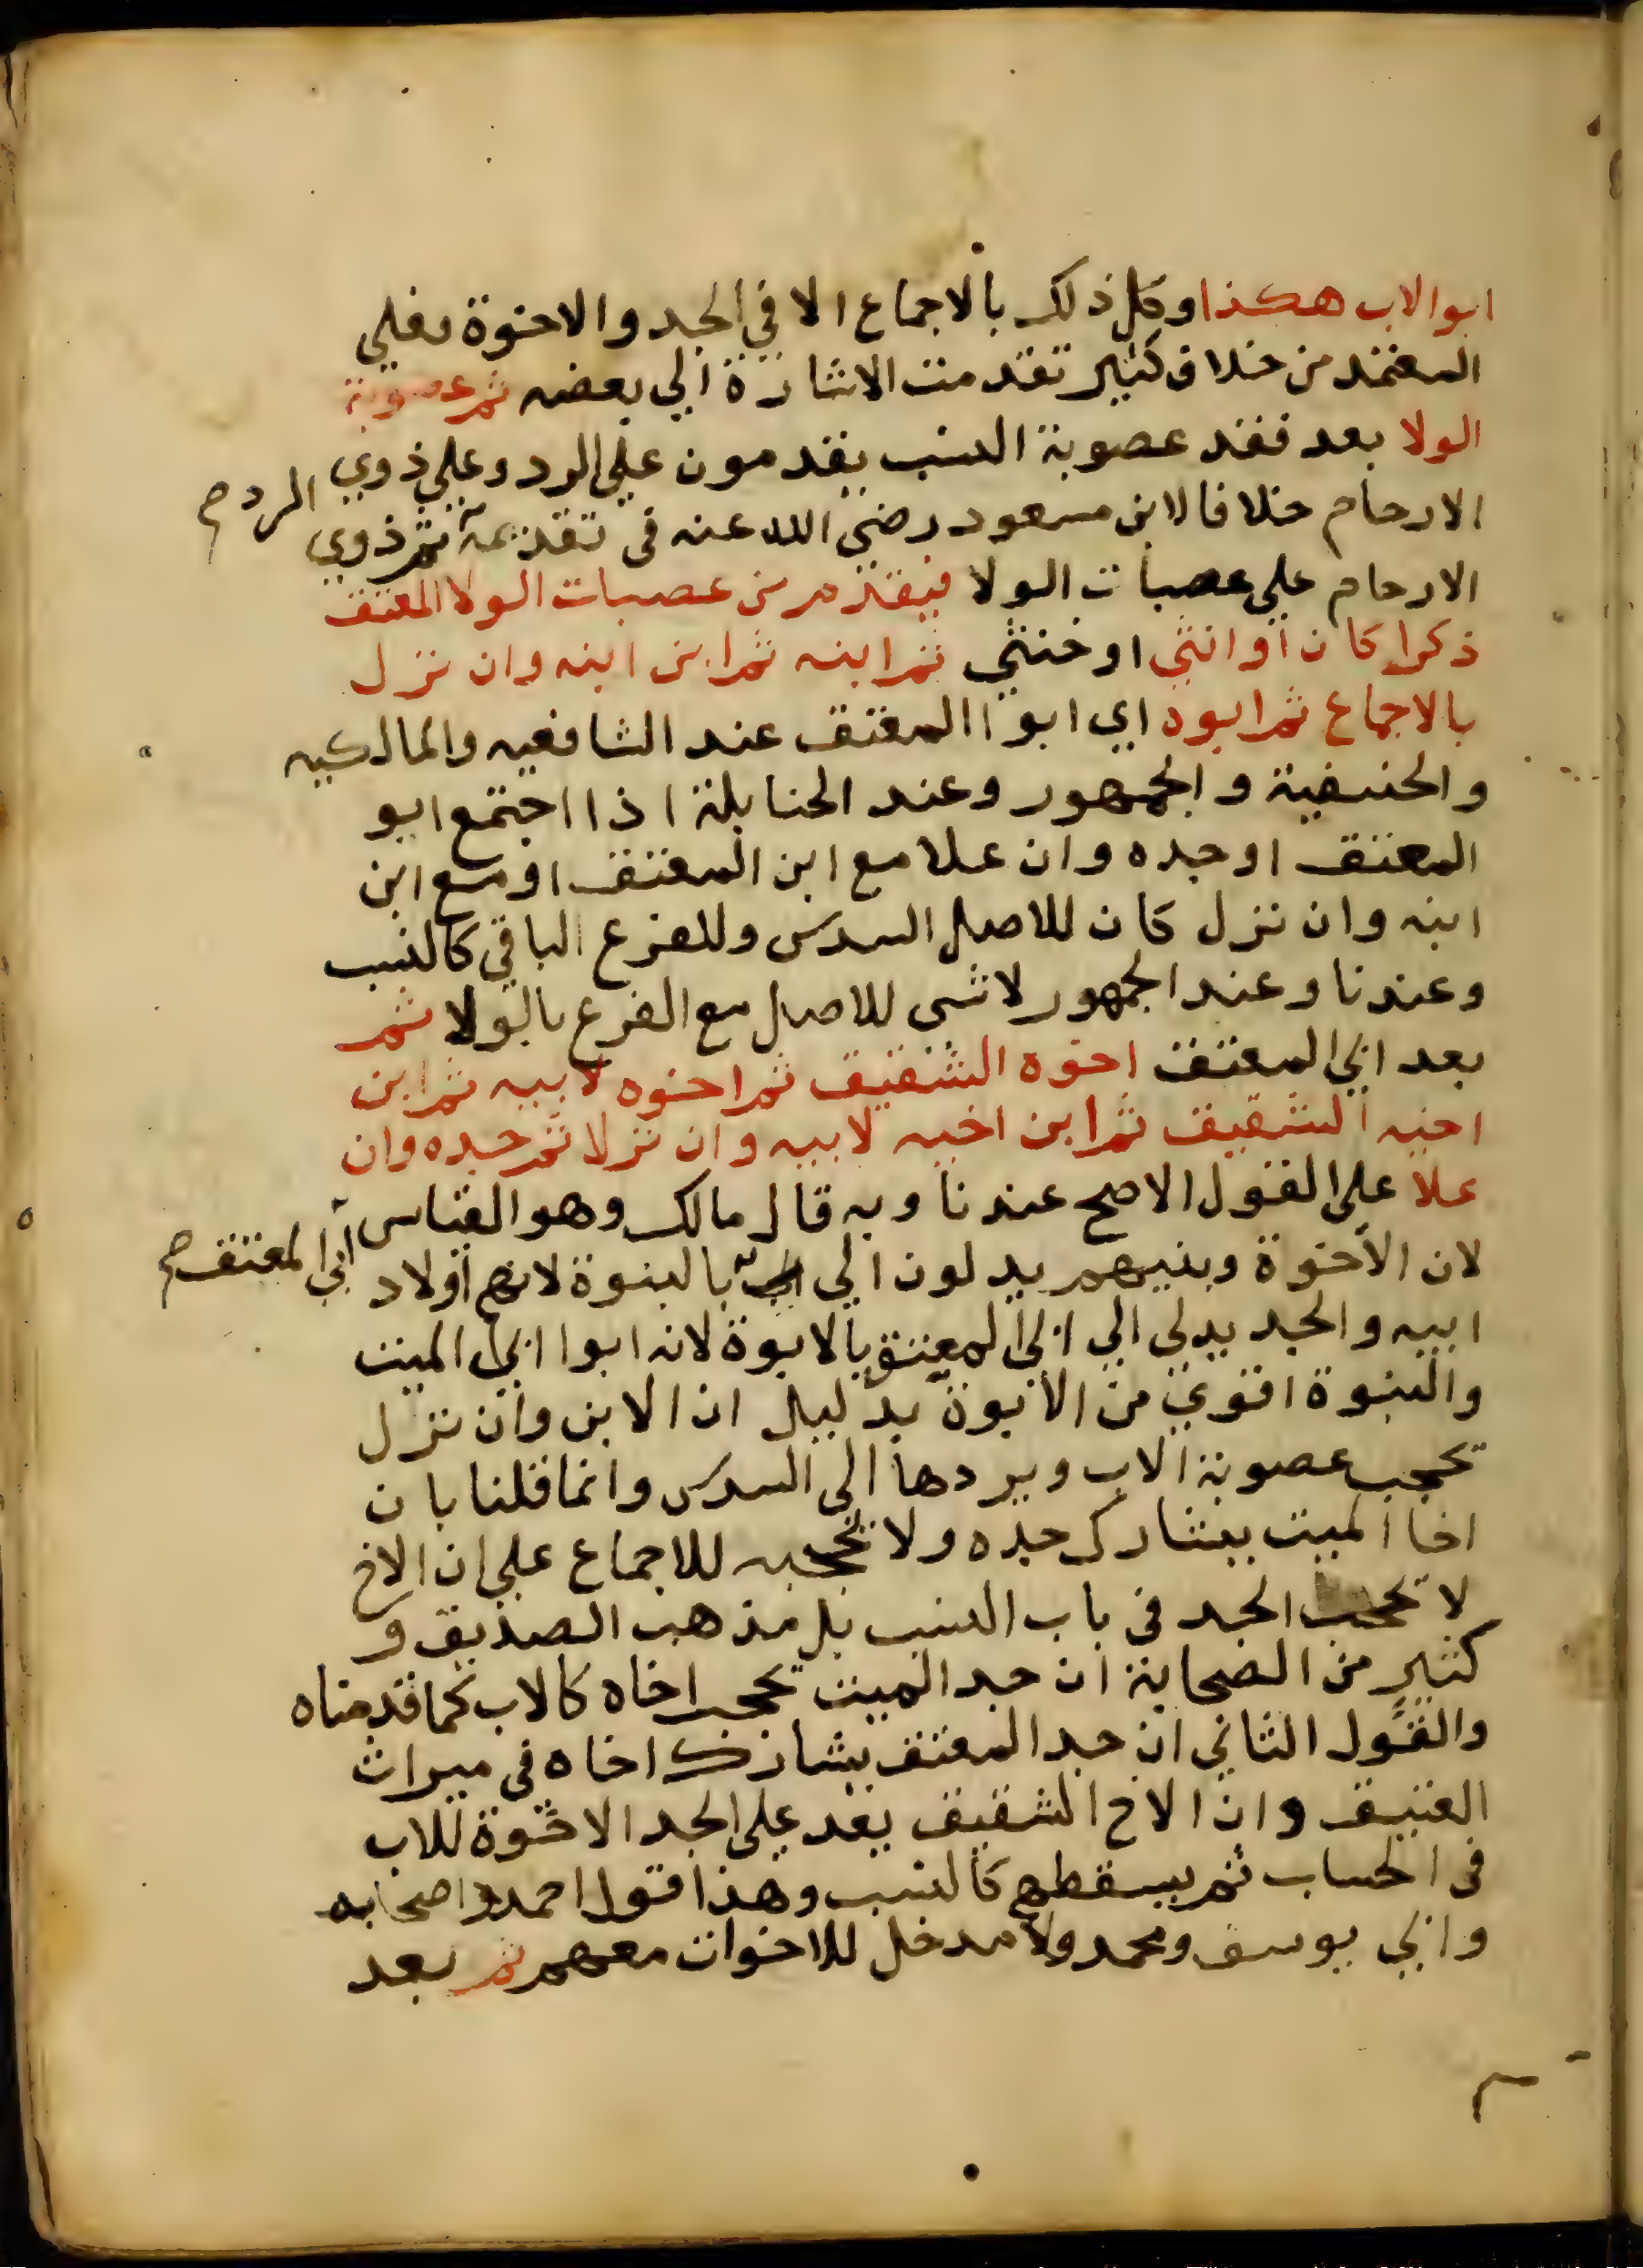 ابو الاب هكذا وكل ذلك بالاجماع الا في الجد والاخوة فعلي
المعتمد من خلاف كثير تقدمت الاشارة الي بعضه ثم عصوبة
الولا بعد فقد عصوبة النسب يقدمون علي الرد وعلي ذوي
الارحام خلافا لابن مسعود رضي الله عنه في تقديمه ثم ذوي
الرد صح
الارحام علي عصبات الولا فيقدم من عصبات الولا المعتق
ذكرا كان او انثي او خنثي ثم ابنه ثم ابن ابنه وان نزل
بالاجماع ثم ابوه اي ابوا المعتق عند الشافعيه والمالكيه
والحنفية والجمهور وعند الحنابلة اذا اجتمع ابو
المعتق او جده وان علا مع ابن المعتق او مع ابن
ابنه وان نزل كان للاصل السدس وللفرع الباقي كالنسب
وعندنا وعند الجمهور لا شي للاصل مع الفرع بالولا ثم
بعد ابي المعتق اخوه الشقيق ثم اخوه لابيه ثم ابن
اخيه الشقيق ثم ابن اخيه لابيه وان نزلا ثم جده وان
علا علي القول الاصح عندنا وبه قال مالك وهو القياس
لان الاخوة وبنيهم يدلون الي بالبنوة لانهم اولاد
ابي المعتق صح
ابيه والجد يدلي الي ابي المعتق بالابوة لانه ابوا ابي الميت
والبنوة اقوي من الابوة بدليل ان الابن وان نزل
يحجب عصوبة الاب ويردها الي السدس وانما قلنا بان
اخا الميت يشارك جده ولا يحجبه للاجماع علي ان الاخ
لا يحجب الجد في باب النسب بل مذهب الصديق و
كثير من الصحابة ان جد الميت يحجب اخاه كالاب كما قدمناه
والقول الثاني ان جد المعتق يشارك اخاه في ميراث
العتيق وان الاخ الشقيق يعد علي الجد الاخوة للاب
في الحساب ثم يسقطهم كالنسب وهذا قول احمد واصحابه
وابي يوسف ومحمد ولا مدخل للاخوات معهم ثم بعد